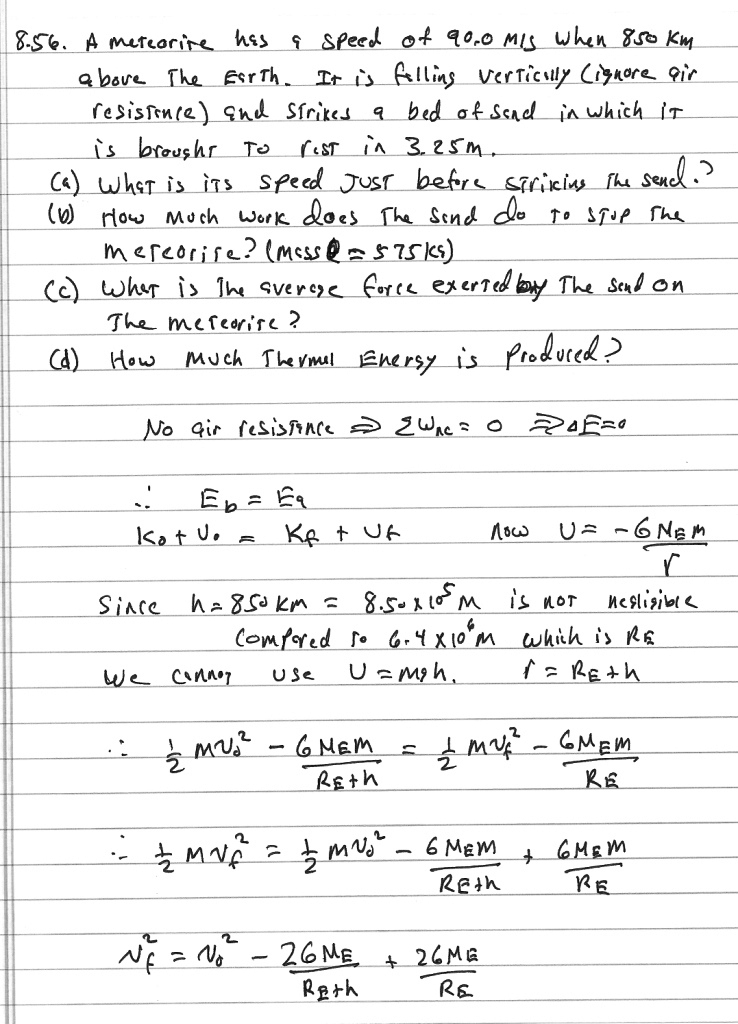 8.56. A meteorite has a speed of 90.0 m/s when 850 km
above the Earth. It is falling vertically (ignore air
resistance) and strikes a bed of sand in which it
is brought to rest in 3.25m.
(a) What is its speed just before striking the sand?
(b) How much work does the sand do to stop the
meteorite? (mass = 575 kg)
(c) What is the average force exerted by the sand on
the meteorite?
(d) How much thermal Energy is produced?
No air resistance ⇒ ΣWnc = 0 ⇒ ΔE=0
∴ Eb = Ea
K0 + U0 = Kf + Uf now U = -GMEm/r
Since h = 850 km = 8.50 x 10^5 m is not negligible
Compared to 6.4 x 10^6 m which is RE
We cannot use U = mgh. r = RE + h
∴ 1/2 mv0^2 - GMEm/(RE+h) = 1/2 mvf^2 - GMEm/RE
∴ 1/2 mvf^2 = 1/2 mv0^2 - GMEm/(RE+h) + GMEm/RE
vf^2 = v0^2 - 2GME/(RE+h) + 2GME/RE